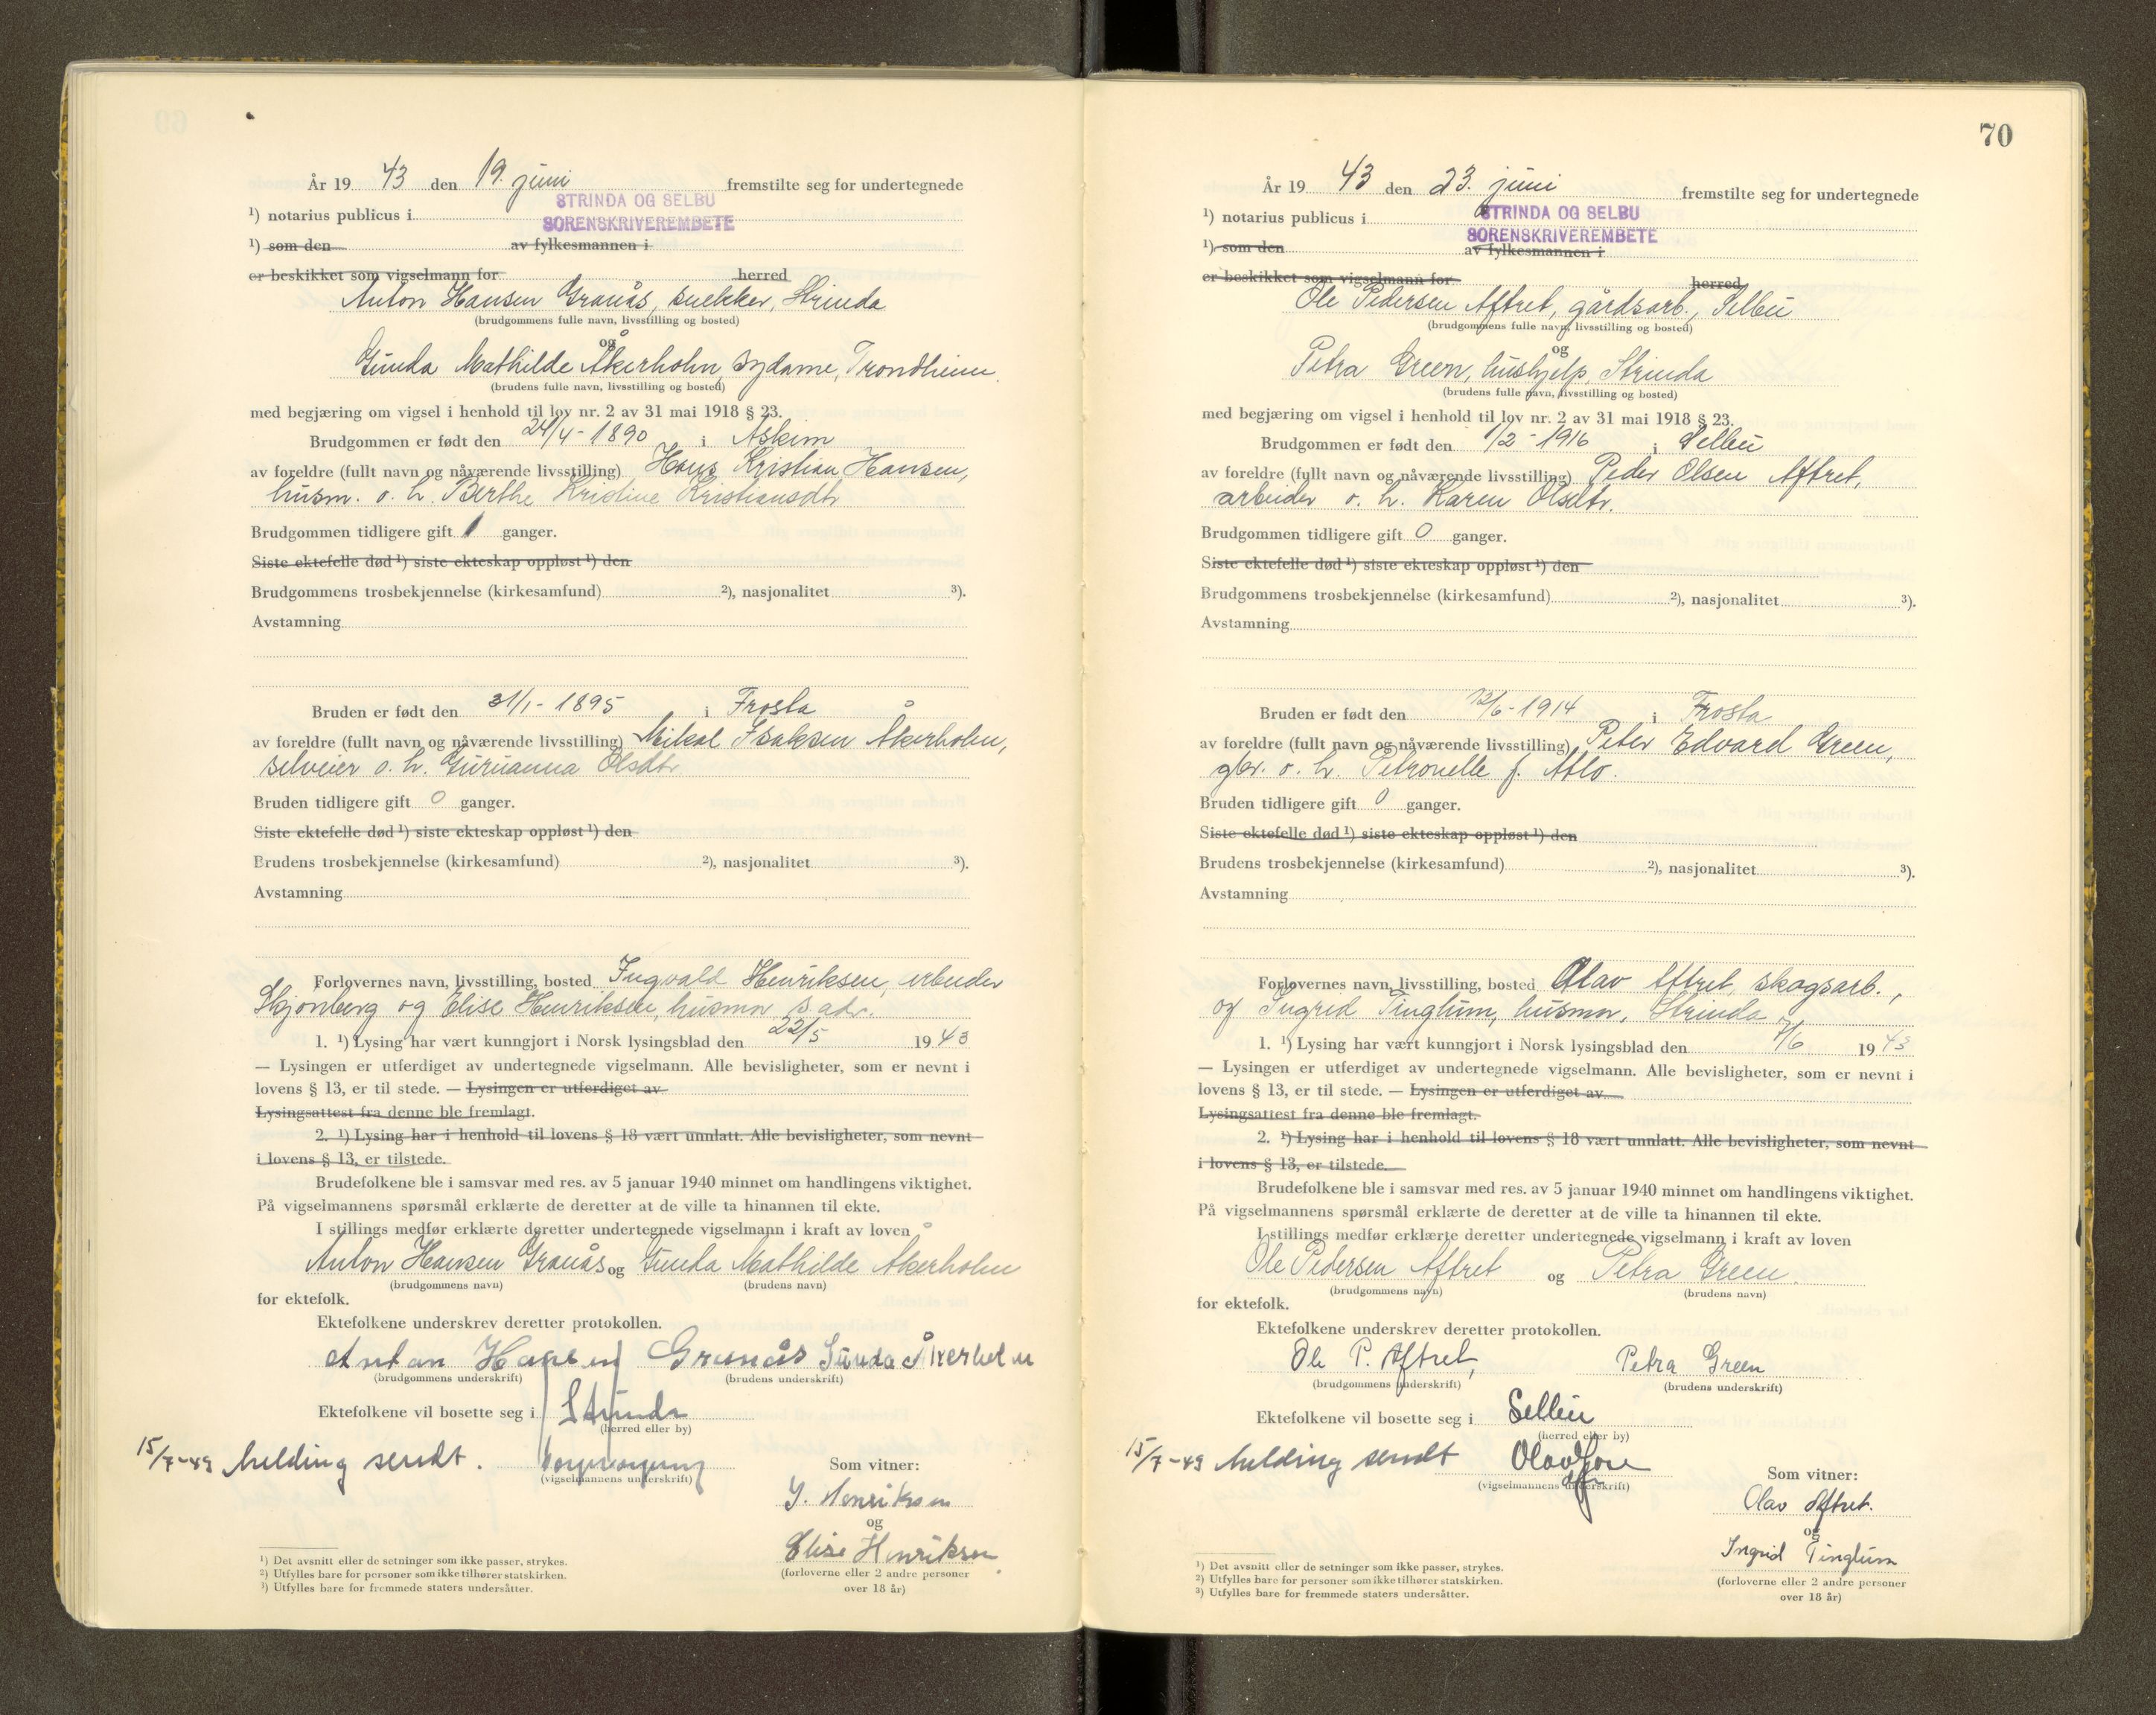 År 19 43 den 19. juni fremstilte seg for undertegnede
¹) notarius publicus i STRINDA OG SELBU
SORENSKRIVEREMBETE
¹) som den av fylkesmannen i
er beskikket som vigselmann for herred
Anton Hansen Granås, snekker, Strinda
(brudgommens fulle navn, livsstilling og bosted)
og
Gunda Mathilde Åkerholm, sydame, Trondheim
(brudens fulle navn, livsstilling og bosted)
med begjæring om vigsel i henhold til lov nr. 2 av 31 mai 1918 § 23.
Brudgommen er født den 24/4-1890 i Askim
av foreldre (fullt navn og nåværende livsstilling) Hans Kristian Hansen,
husm. o. h. Berthe Kristine Kristiansdtr
Brudgommen tidligere gift 1 ganger.
Siste ektefelle død ¹) siste ekteskap oppløst ¹) den
Brudgommens trosbekjennelse (kirkesamfund) ²), nasjonalitet ³).
Avstamning
Bruden er født den 31/1-1895 i Frosta
av foreldre (fullt navn og nåværende livsstilling) Mikal Isaksen Åkerholm,
selveier o. h. Gurianna Olsdtr
Bruden tidligere gift 0 ganger.
Siste ektefelle død ¹) siste ekteskap oppløst ¹) den
Brudens trosbekjennelse (kirkesamfund) ²), nasjonalitet ³).
Avstamning
Forlovernes navn, livsstilling, bosted Ingvald Henriksen, arbeider
Skjønberg og Elise Henriksen, husmor s. adr.
1. ¹) Lysing har vært kunngjort i Norsk lysingsblad den 22/5 19 43
— Lysingen er utferdiget av undertegnede vigselmann. Alle bevisligheter, som er nevnt i
lovens § 13, er til stede. — Lysingen er utferdiget av
Lysingsattest fra denne ble fremlagt.
2. ¹) Lysing har i henhold til lovens § 18 vært unnlatt. Alle bevisligheter, som nevnt
i lovens § 13, er tilstede.
Brudefolkene ble i samsvar med res. av 5 januar 1940 minnet om handlingens viktighet.
På vigselmannens spørsmål erklærte de deretter at de ville ta hinannen til ekte.
I stillings medfør erklærte deretter undertegnede vigselmann i kraft av loven
Anton Hansen Granås og Gunda Mathilde Åkerholm
(brudgommens navn) (brudens navn)
for ektefolk.
Ektefolkene underskrev deretter protokollen.
Anton Hansen Granås Gunda Åkerholm
(brudgommens underskrift) (brudens underskrift)
Ektefolkene vil bosette seg i Strinda
(herred eller by)
15/7-43 Melding sendt.
(vigselmannens underskrift)
Som vitner:
I. Henriksen
og
Elise Henriksen
(forloverne eller 2 andre personer
over 18 år)
¹) Det avsnitt eller de setninger som ikke passer, strykes.
²) Utfylles bare for personer som ikke tilhører statskirken.
³) Utfylles bare for fremmede staters undersåtter.
70
År 19 43 den 23. juni fremstilte seg for undertegnede
¹) notarius publicus i STRINDA OG SELBU
SORENSKRIVEREMBETE
¹) som den av fylkesmannen i
er beskikket som vigselmann for herred
Ole Pedersen Aftret, gårdsarb., Selbu
(brudgommens fulle navn, livsstilling og bosted)
og
Petra Green, hushjelp, Strinda
(brudens fulle navn, livsstilling og bosted)
med begjæring om vigsel i henhold til lov nr. 2 av 31 mai 1918 § 23.
Brudgommen er født den 1/2-1916 i Selbu
av foreldre (fullt navn og nåværende livsstilling) Peder Olsen Aftret,
arbeider o. h. Karen Olsdtr.
Brudgommen tidligere gift 0 ganger.
Siste ektefelle død ¹) siste ekteskap oppløst ¹) den
Brudgommens trosbekjennelse (kirkesamfund) ²), nasjonalitet ³).
Avstamning
Bruden er født den 13/6-1914 i Frosta
av foreldre (fullt navn og nåværende livsstilling) Peter Edvard Green,
gbr. o. h. Petronelle f. Aflo.
Bruden tidligere gift 0 ganger.
Siste ektefelle død ¹) siste ekteskap oppløst ¹) den
Brudens trosbekjennelse (kirkesamfund) ²), nasjonalitet ³).
Avstamning
Forlovernes navn, livsstilling, bosted Olav Aftret, skogsarb.,
og Ingrid Tinglum, husmor, Strinda
1. ¹) Lysing har vært kunngjort i Norsk lysingsblad den 7/6 19 43
— Lysingen er utferdiget av undertegnede vigselmann. Alle bevisligheter, som er nevnt i
lovens § 13, er til stede. — Lysingen er utferdiget av
Lysingsattest fra denne ble fremlagt.
2. ¹) Lysing har i henhold til lovens § 18 vært unnlatt. Alle bevisligheter, som nevnt
i lovens § 13, er tilstede.
Brudefolkene ble i samsvar med res. av 5 januar 1940 minnet om handlingens viktighet.
På vigselmannens spørsmål erklærte de deretter at de ville ta hinannen til ekte.
I stillings medfør erklærte deretter undertegnede vigselmann i kraft av loven
Ole Pedersen Aftret og Petra Green.
(brudgommens navn) (brudens navn)
for ektefolk.
Ektefolkene underskrev deretter protokollen.
Ole P. Aftret, Petra Green
(brudgommens underskrift) (brudens underskrift)
Ektefolkene vil bosette seg i Selbu
(herred eller by)
15/7-43 Melding sendt Olav
(vigselmannens underskrift)
Som vitner:
Olav Aftret.
og
Ingrid Tinglum
(forloverne eller 2 andre personer
over 18 år)
¹) Det avsnitt eller de setninger som ikke passer, strykes.
²) Utfylles bare for personer som ikke tilhører statskirken.
³) Utfylles bare for fremmede staters undersåtter.